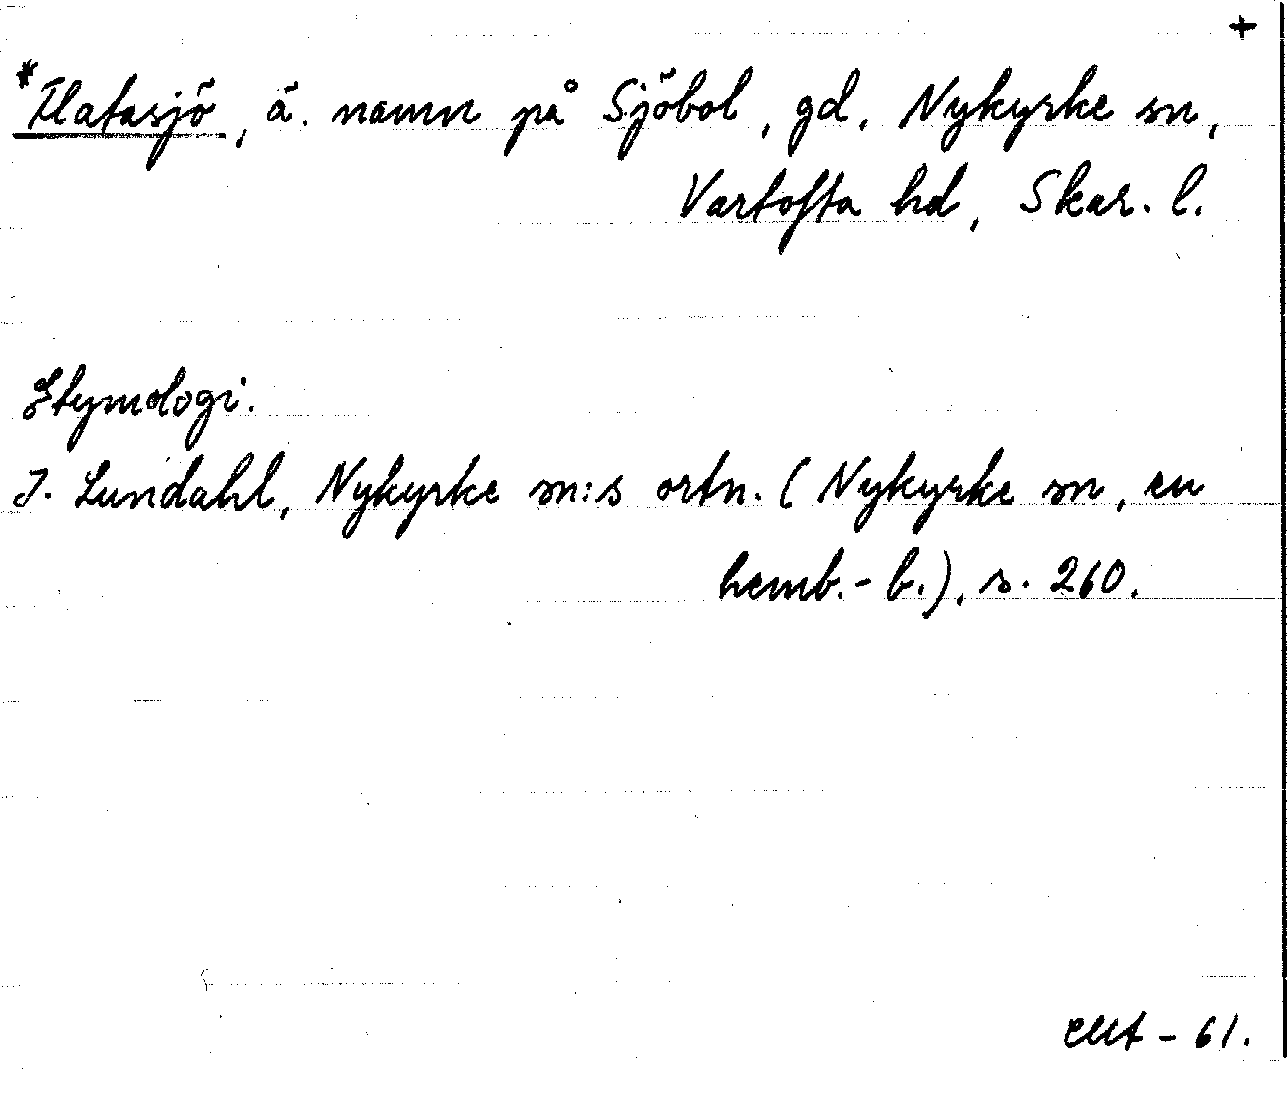 +
*Flatasjö, ä. namn på Sjöbol, gd, Nykyrke sn,
Vartofta hd, Skar. l.
Etymologi.
I. Lundahl, Nykyrke sn:s ortn. (Nykyrke sn, en
hemb.-b.), s. 260.
- 61.